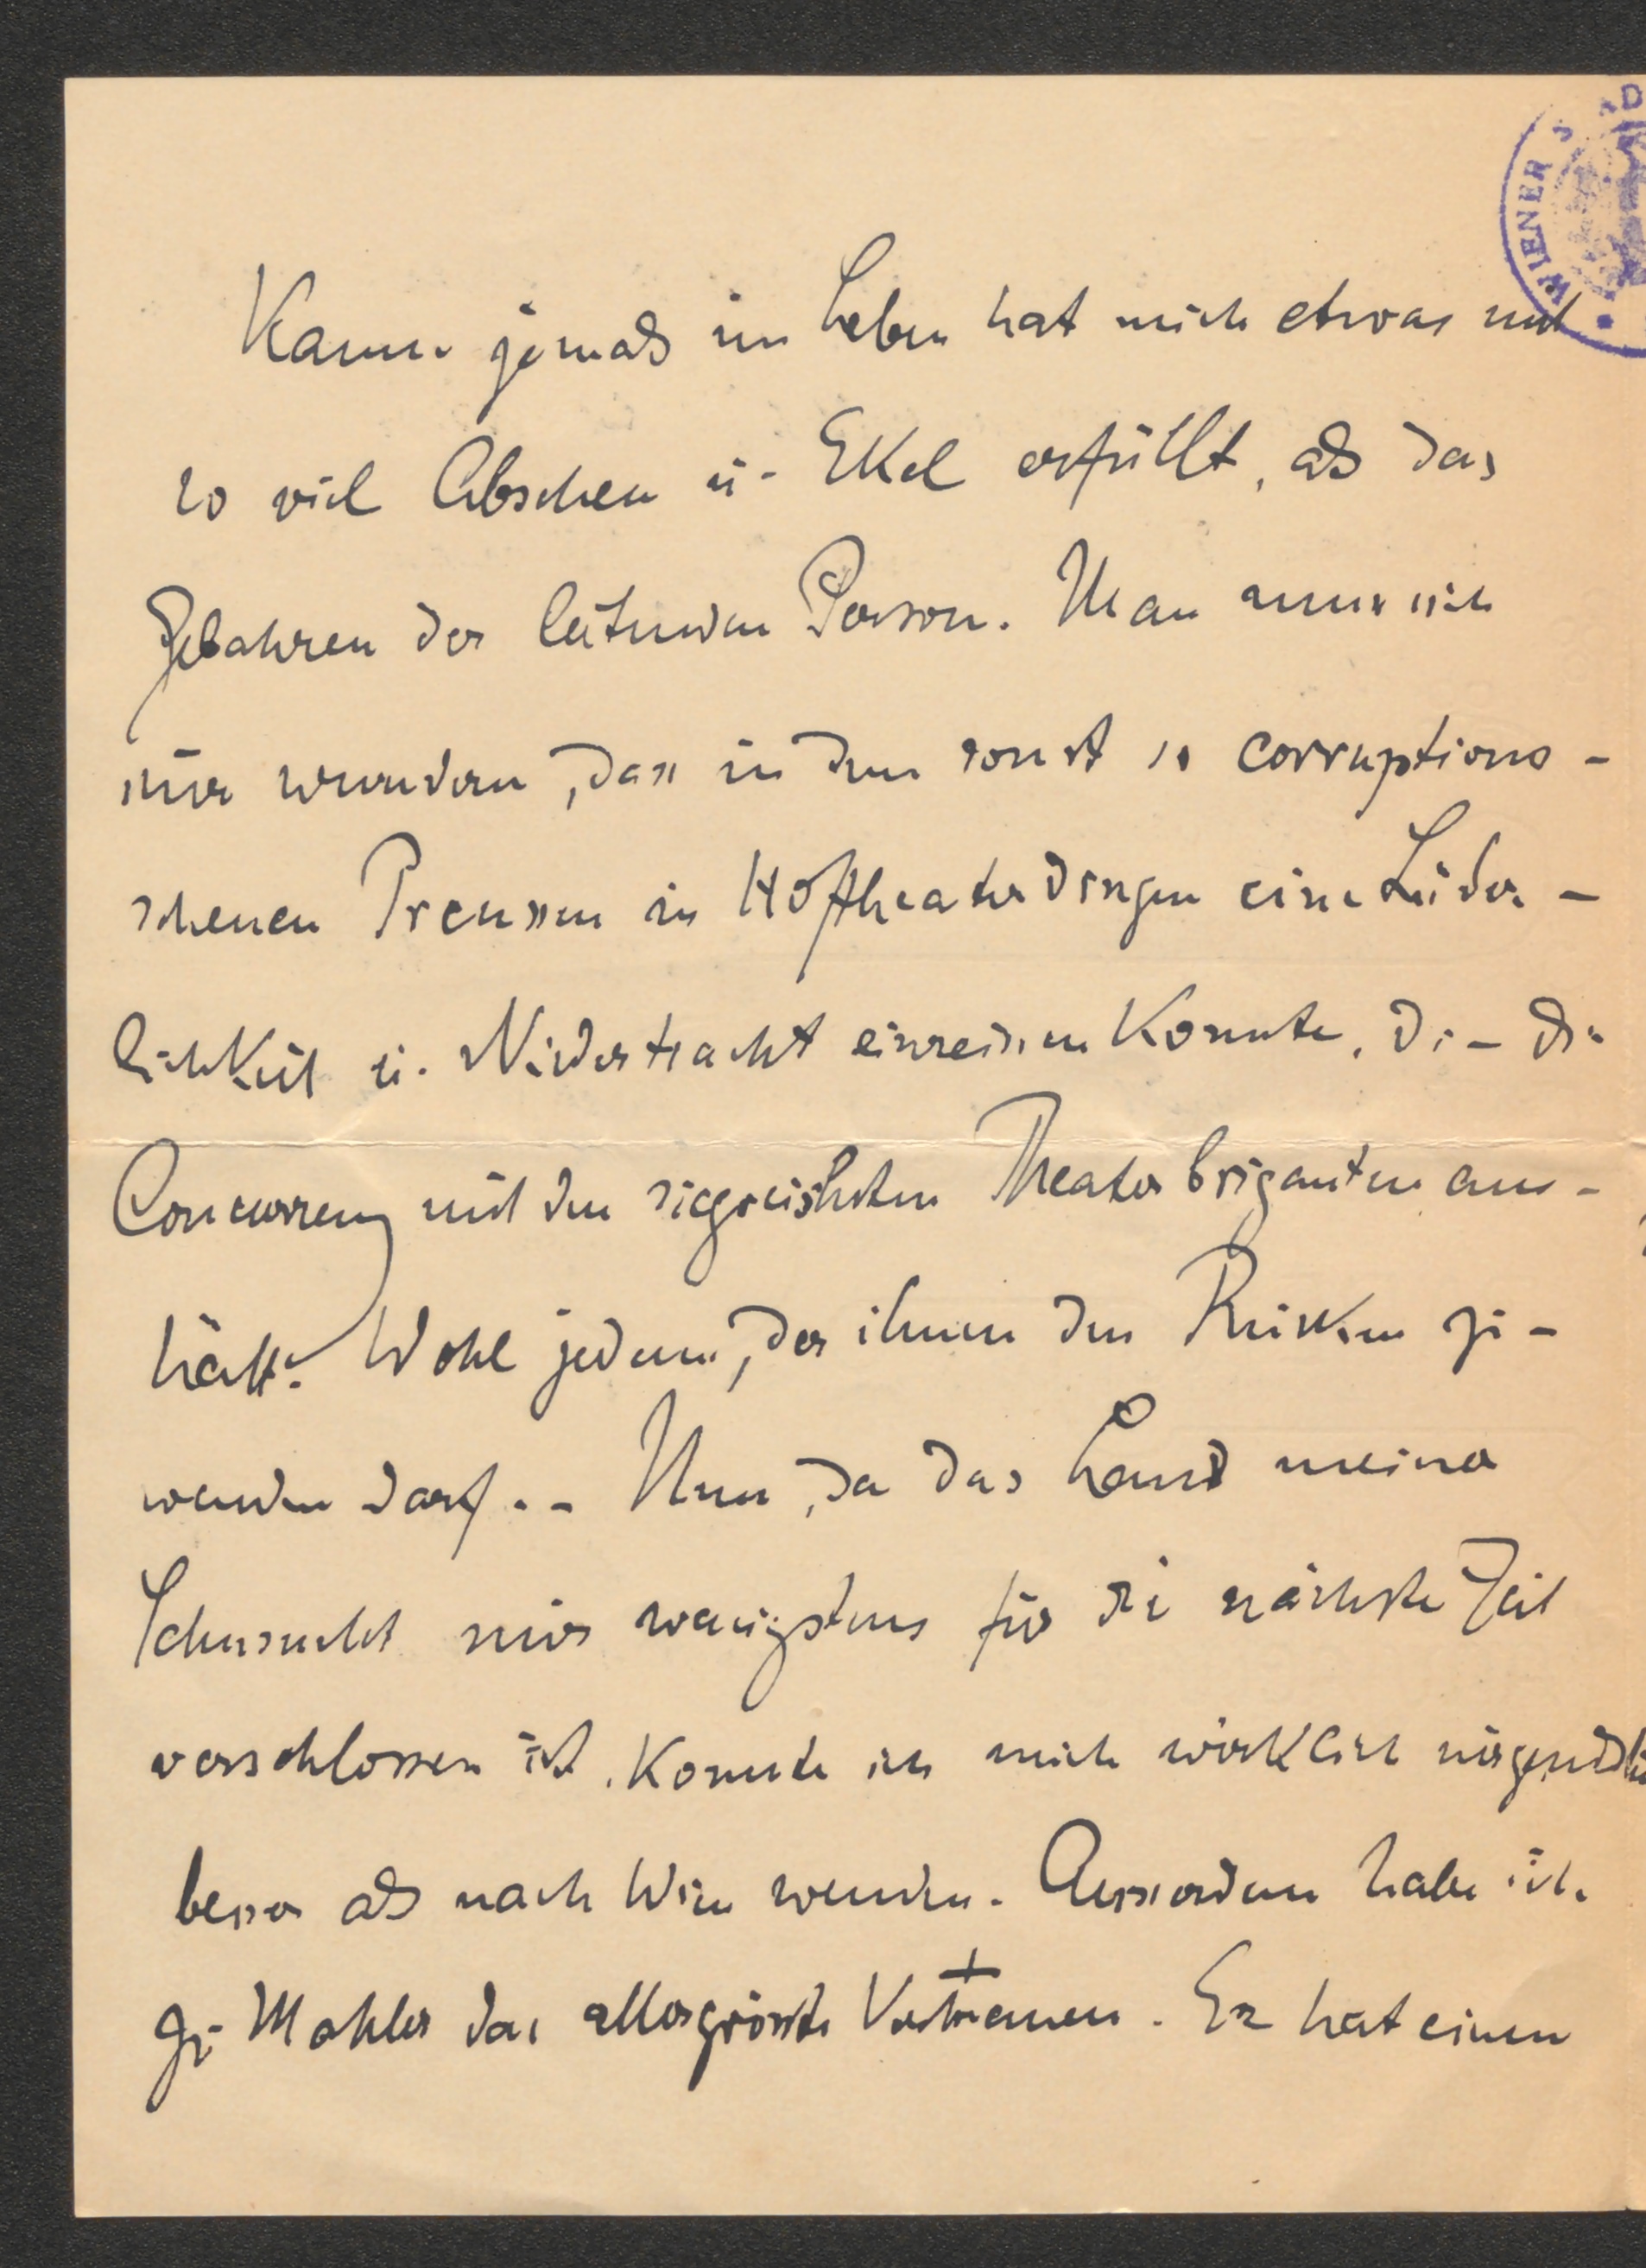 WIENER STAD
Kaum jemals im Leben hat mich etwas mit
so viel Abscheu u. Ekel erfüllt, als das
Gebahren der leitenden Person. Man muss sich
nur wundern, dass in dem sonst so corruptions-
scheuen Preussen in Hoftheaterdingen eine Lüder-
lichkeit u. Niedertracht einreissen konnte, die – die
Concurrenz mit den siegreichsten Theaterbriganten aus-
hält. Wohl jedem, der ihnen den Rücken zu-
wenden darf. – Nun, da das Land meiner
Sehnsucht mir wenigstens für die nächste Zeit
verschlossen ist, konnte ich mich wirklich nirgends hin
besser als nach Wien wenden. Ausserdem habe ich
zu Mahler das allergrösste Vertrauen. Er hat einen